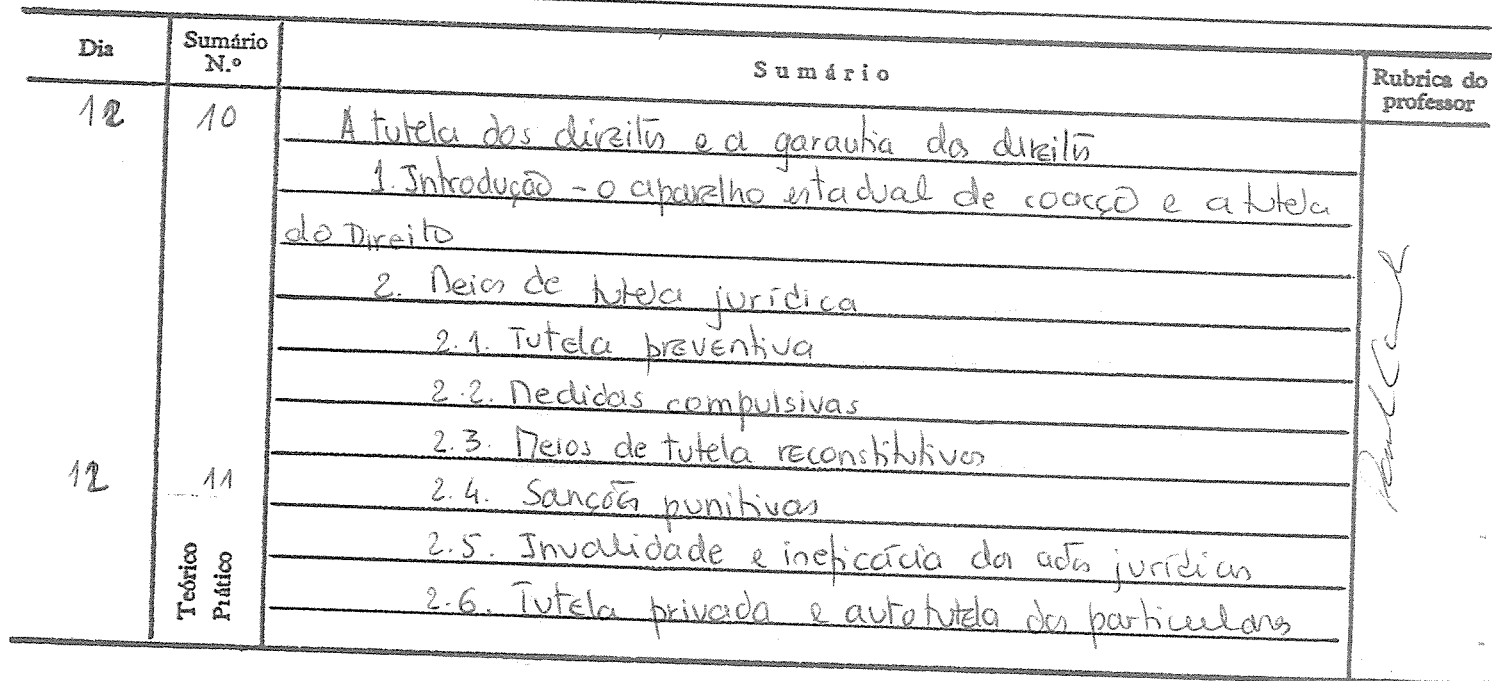 Dia Sumário N.º Sumário Rubrica do professor
12 10 A tutela dos direitos e a garantia dos direitos
1. Introdução - o aparelho estadual de coacção e a tutela
do Direito
2. Meios de tutela jurídica
2.1. Tutela preventiva
2.2. Medidas compulsivas
2.3. Meios de tutela reconstitutivos
12 11 2.4. Sanções punitivas
Teórico Prático 2.5. Invalidade e ineficácia dos actos jurídicos
2.6. Tutela privada e autotutela dos particulares